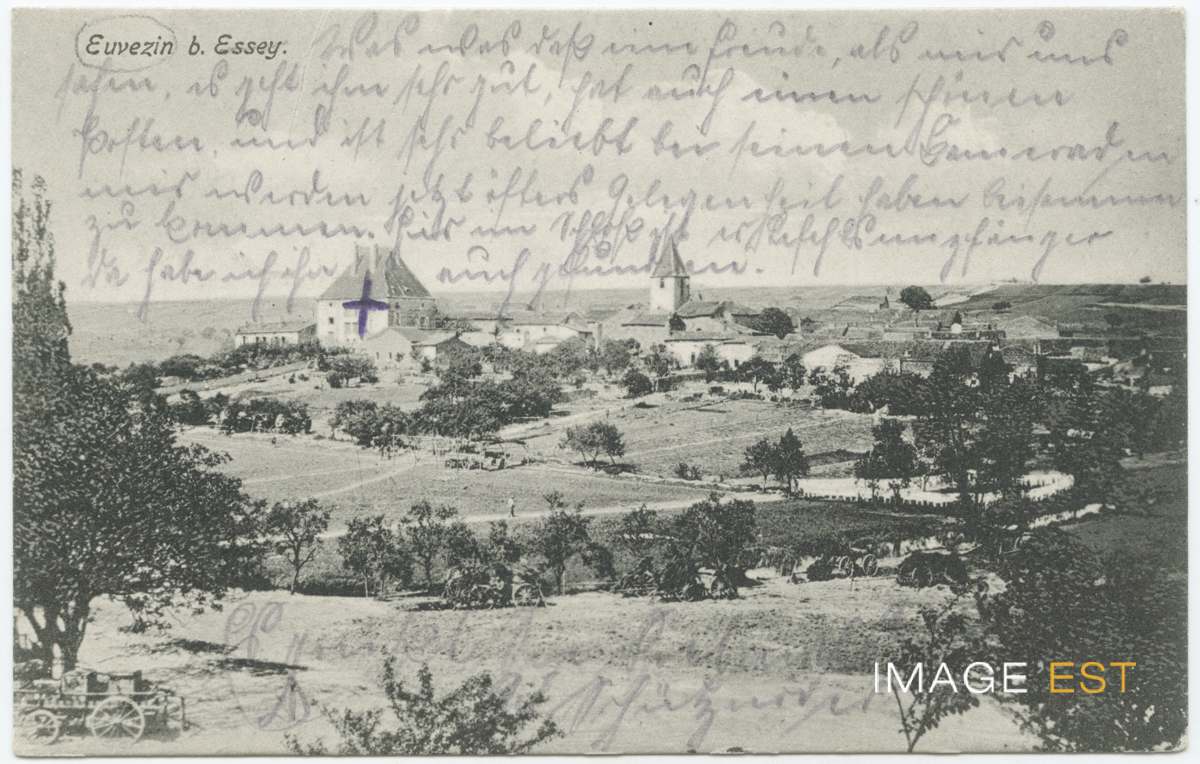 Euvezin b. Essey.
Was was daß eine Freude, als wir uns
sahen, es geht ihm sehr gut, hat auch einen schönen
Posten, und ist sehr beliebt bei seinen Kameraden
wir werden jetzt öfters Gelegenheit haben beisammen
zu kommen. Hier im Schloß ist er Befehlsempfänger
da habe ich ihn auch gefunden.
IMAGE'EST